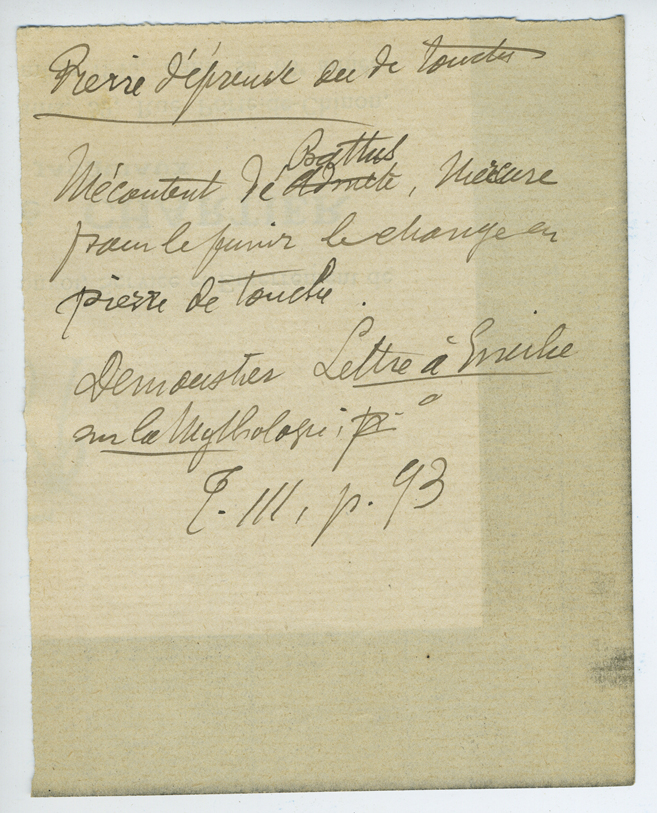 Pierre d'épreuve ou de touche
Mécontent de Battus Admète, Mercure
pour le punir le change en
pierre de touche.
Demoustier Lettre à Emilie
sur la Mythologie, p.
T. III, p. 93